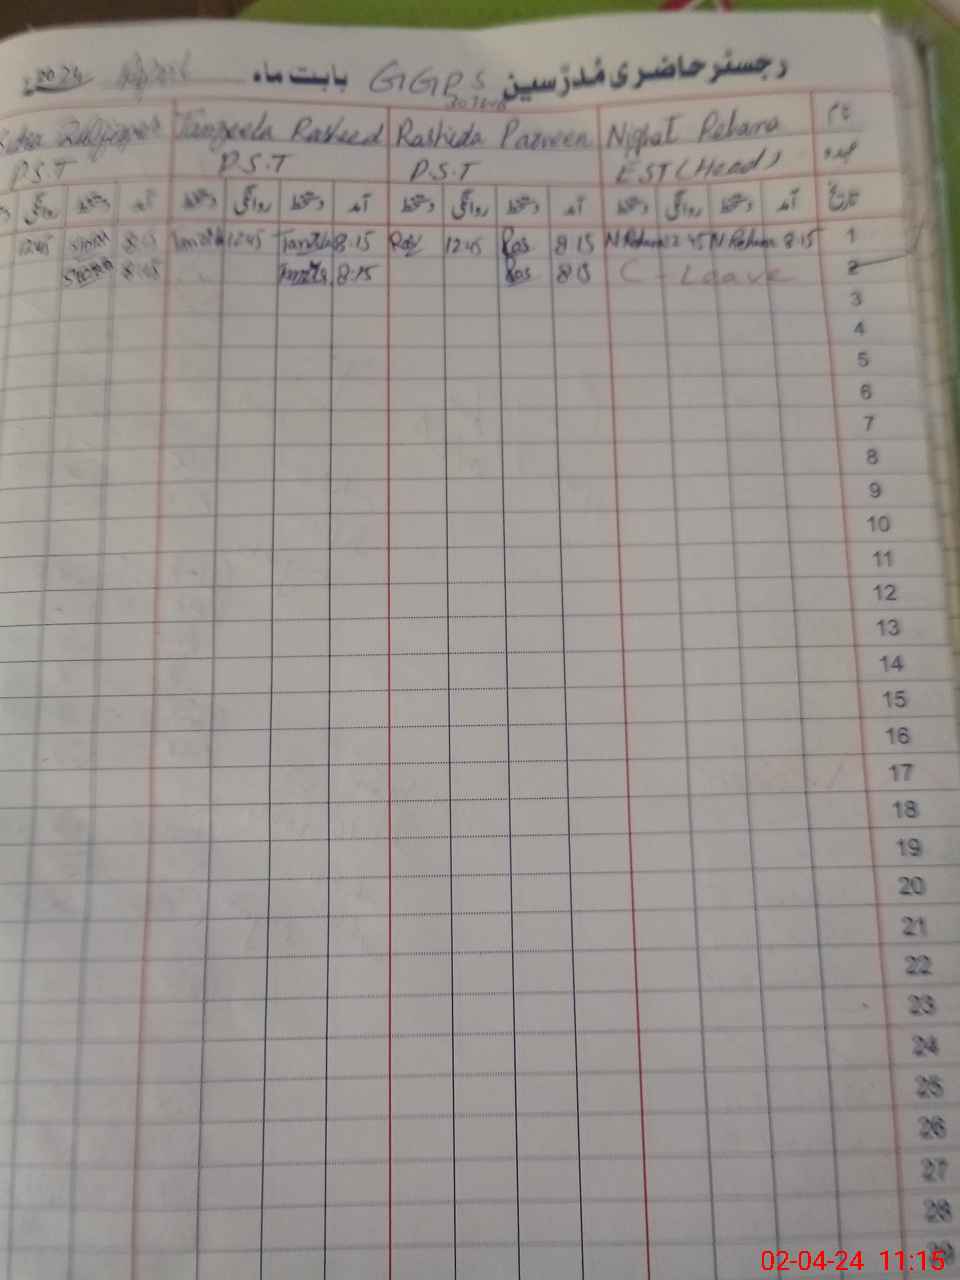 رجسٹر حاضری مُدرّسین GGPS بابت ماہ April 2024
نام Nighat Rehana Rashida Parveen Tanzeela Rasheed
عہدہ EST (Head) P.S.T P.S.T P.S.T
تاریخ آمد دستخط روانگی دستخط آمد دستخط روانگی دستخط آمد دستخط روانگی دستخط آمد دستخط روانگی
1 8:15 N Rehana 12:45 N Rehana 8:15 Ras 12:45 8:15 12:45 8:15 12:45
2 C - Leave 8:15 Ras 8:15 8:15
3
4
5
6
7
8
9
10
11
12
13
14
15
16
17
18
19
20
21
22
23
24
25
26
27
28
29
02-04-24 11:15